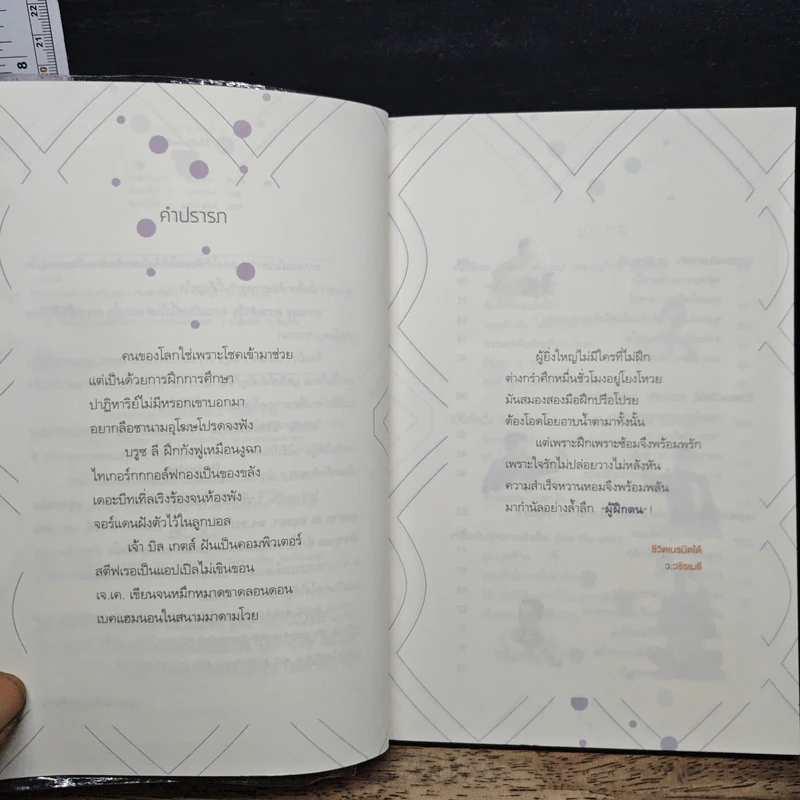 22
21
8
คำปรารภ
คนของโลกใช่เพราะโชคเข้ามาช่วย
แต่เป็นด้วยการฝึกการศึกษา
ปาฏิหาริย์ไม่มีหรอกเขาบอกมา
อยากลือชานามอุโฆษโปรดจงฟัง
บรูซ ลี ฝึกกังฟูเหมือนงูฉก
ไทเกอร์กกกอล์ฟกองเป็นของขลัง
เดอะบีทเทิ่ลเริงร้องจนห้องพัง
จอร์แดนฝังตัวไว้ในลูกบอล
เจ้า บิล เกตส์ ฝันเป็นคอมพิวเตอร์
สตีฟเรอเป็นแอปเปิลไม่เขินขอน
เจ.เค. เขียนจนหมึกหมาดขาดลอนดอน
เบคแฮมนอนในสนามมาตามโวย
ผู้ยิ่งใหญ่ไม่มีใครที่ไม่ฝึก
ต่างกรำศึกหมื่นชั่วโมงอยู่โยงโหวย
มันสมองสองมือฝึกปรือโปรย
ต้องโอดโอยอาบน้ำตามาทั้งนั้น
แต่เพราะฝึกเพราะซ้อมจึงพร้อมพรัก
เพราะใจรักไม่ปล่อยวางไม่หลังหัน
ความสำเร็จหวานหอมจึงพร้อมพลัน
มากำนัลอย่างล้ำลึก -ผู้ฝึกตน- !
ชีวิตเนรมิตได้
ว.วชิรเมธี